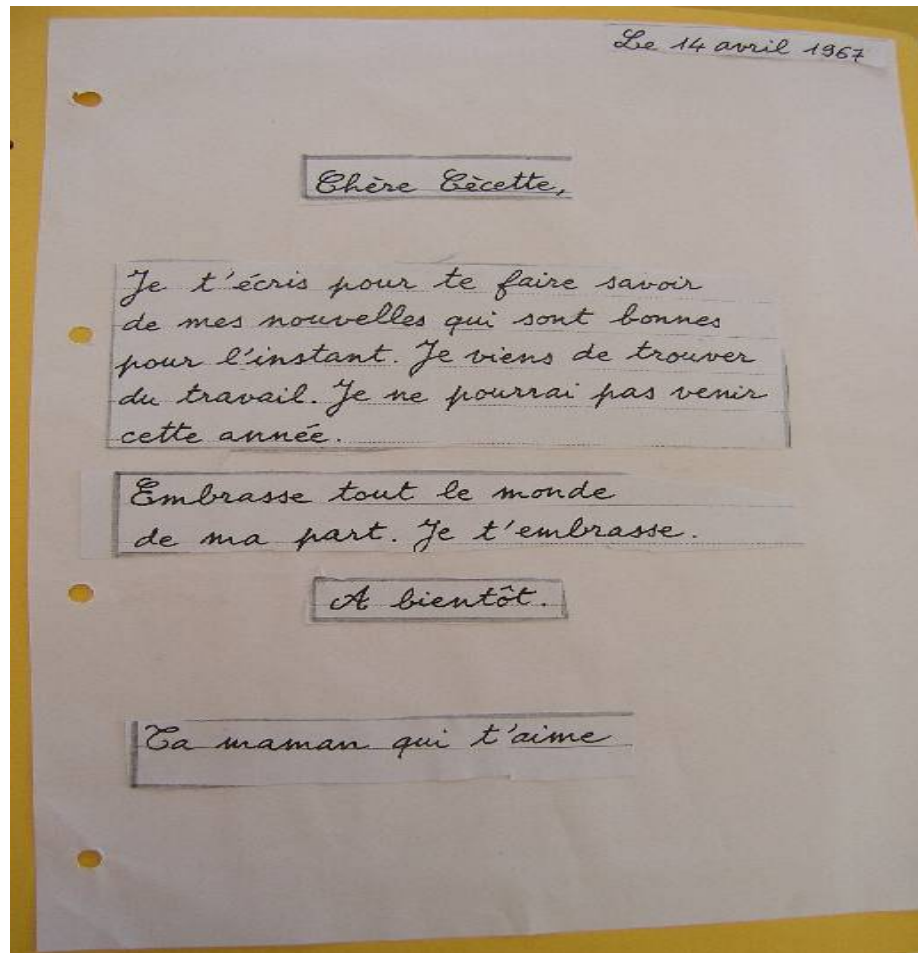 Le 14 avril 1967
Chère Cècette,
Je t'écris pour te faire savoir
de mes nouvelles qui sont bonnes
pour l'instant. Je viens de trouver
du travail. Je ne pourrai pas venir
cette année.
Embrasse tout le monde
de ma part. Je t'embrasse.
A bientôt.
Ta maman qui t'aime